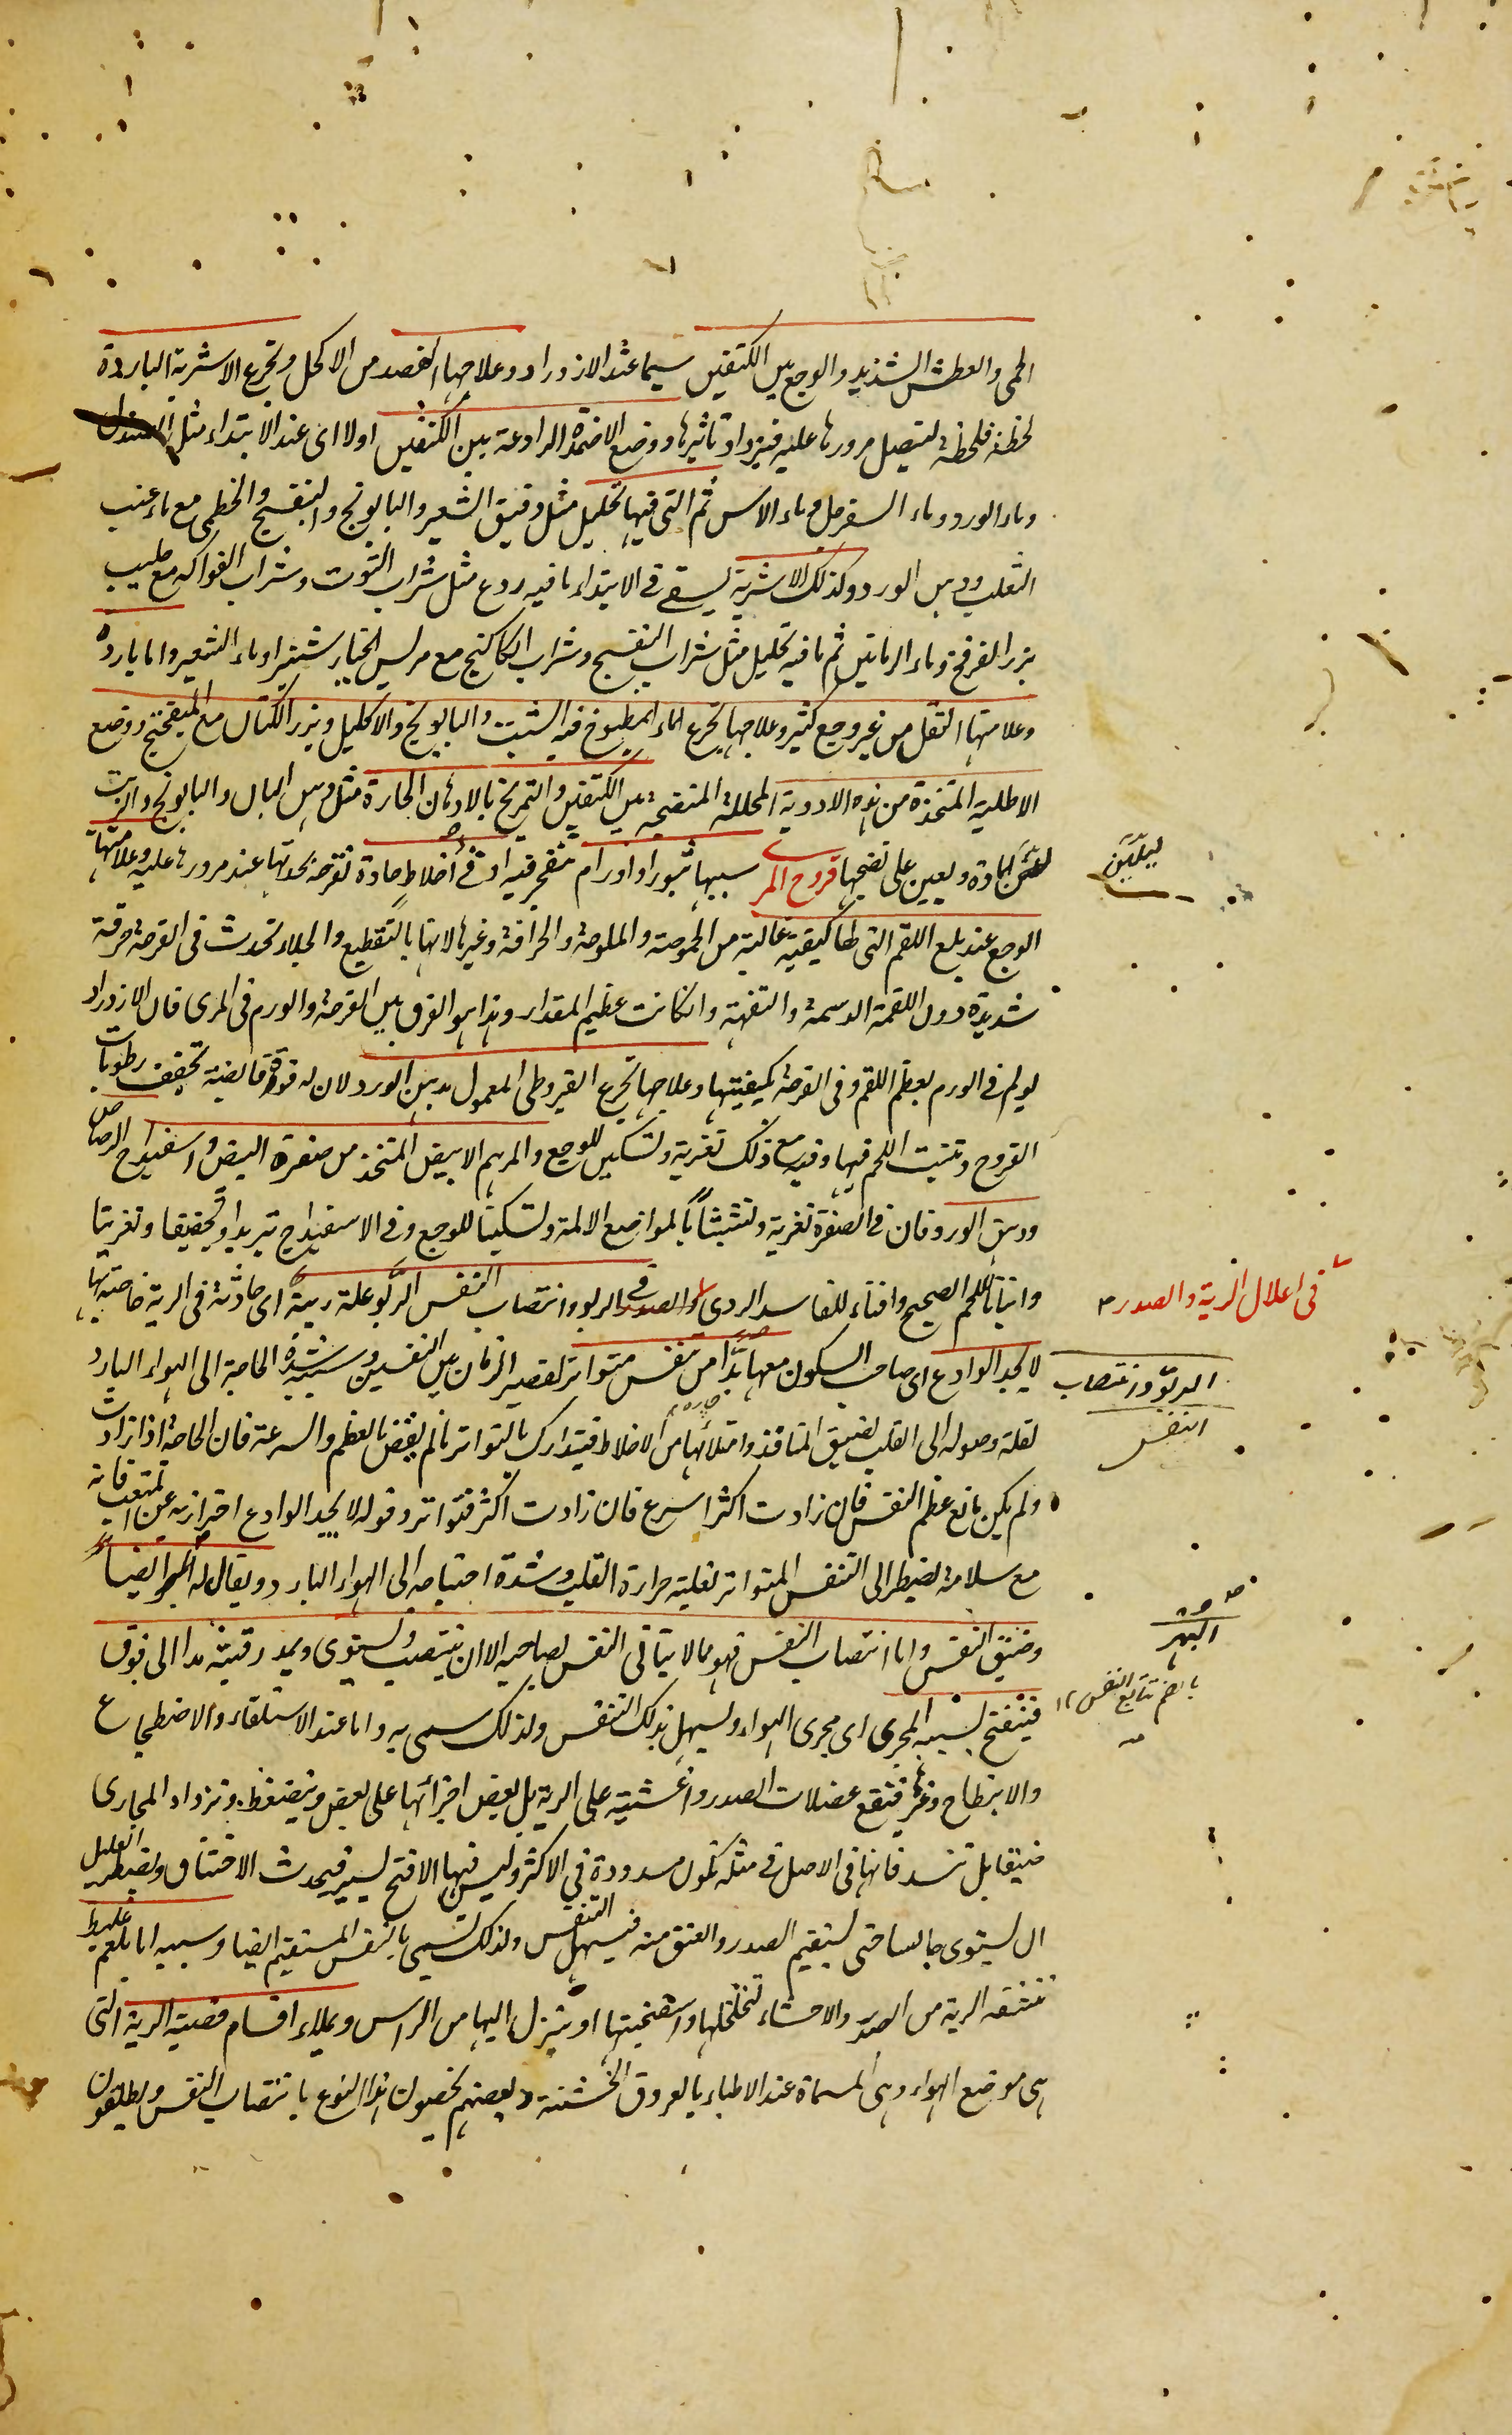 الحمى والعطش الشديد والوجع بين الكتفين سيما عند الازدراد وعلاجها الفصد من الاكحل وتجرع الاشربة الباردة
لحظة فلحظة ليتصل مرورها عليه فيزداد تاثيرها ووضع الاضمدة الرادعة بين الكتفين اولا اى عند الابتداء مثل الصندل
وماء الورد وماء السفرجل وماء الآس ثم التى فيها تحليل مثل دقيق الشعير والبابونج والبنفسج والخطمى مع ماء عنب
الثعلب ودهن الورد وكذلك الاشربة يسقى فى الابتداء ما فيه ردع مثل شراب التوت وشراب الفواكه مع حليب
بزر الفرفخ وماء الرمانين ثم ما فيه تحليل مثل شراب البنفسج وشراب الكاكنج مع مريس الخيار شنبر او ماء الشعير واما باردة
وعلامتها الثقل من غير وجع كثير وعلاجها تجرع الماء المطبوخ فيه الشبت والبابونج والاكليل وبزر الكتان مع الميفختج ووضع
الاطلية المتخذة من هذه الادوية المحللة المنضجة بين الكتفين والتمريخ بالادهان الحارة مثل دهن البان والبابونج والزيت
ليلين
المادة ويعين على نضجها قروح المرى سببها بثور او اورام تنفجر فيه او اخلاط حادة تقرحه بحدتها عند مرورها عليه وعلامتها
الوجع عند بلع اللقم التى لها كيفية غالبة من الحموضة والملوحة والحرافة وغيرها لانها بالتقطيع والجلاء تحدث فى القرحة حرقة
شديدة دون اللقمة الدسمة والتفهة وان كانت عظيم المقدار وهذا هو الفرق بين القرحة والورم فى المرى فان الازدراد
يولم فى الورم بعظم اللقم وفى القرحة بكيفيتها وعلاجها تجرع القيروطى المعمول بدهن الورد لان له قوة قابضة تجفف رطوبات
القروح وتنبت اللحم فيها وفيه مع ذلك تغرية وتسكين للوجع والمرهم الابيض المتخذ من صفرة البيض واسفيداج الرصاص
ودهن الورد فان فى الصفرة تغرية وتشبثا بالمواضع الالمة وتسكينا للوجع وفى الاسفيداج تبريدا وتجفيفا وتغريتا
فى اعلال الرية والصدر
وانباتا للحم الصحيح وافناء للفاسد الردى الربو وانتصاب النفس الربو علة ريية اى حادثة فى الرية خاصة بها
الربو وانتصاب النفس
لا يجد الوادع اى صاحب السكون معها بدا من تنفس متواتر لقصير الزمان بين النفسين وسببه شدة الحاجة الى الهواء البارد
لقلة وصوله الى القلب لضيق المنافذ وامتلائها من الاخلاط فيتدارك بالتواتر ما لم يف بالعظم والسرعة فان الحاجة اذا زادت
ولم يكن مانع عظم النفس فان زادت اكثر اسرع فان زادت اكثر فتواتر وقوله لا يجد الوادع احتراز به عن المتعب فانه
مع سلامته يضطر الى التنفس المتواتر لغلبة حرارة القلب وشدة احتياجه الى الهواء البارد ويقال له البهر ايضا
البهر
بالضم تتابع النفس ١٢
وضيق النفس واما انتصاب النفس فهو ما لا يتاتى النفس لصاحبه الا ان ينتصب ويستوى ويمد رقبته مدا الى فوق
فينفتح بسببه المجرى اى مجرى الهواء ويسهل بذلك التنفس ولذلك سمى به واما عند الاستلقاء والاضطجاع
والانبطاح وغيرها فتقع عضلات الصدر واغشيته على الرية بل بعض اجزائها على بعض وينضغط وتزداد المجارى
ضيقا بل تنسد فانها فى الاصل فى مثله تكون مسدودة فى الاكثر وليس فيها الا فتح يسير فيحدث الاختناق ويضطر العليل
ان يستوى جالسا حتى يستقيم الصدر والعنق منه فيسهل التنفس ولذلك يسمى بالنفس المستقيم ايضا وسببه اما بلغم غليظ
تنشفه الرية من الصدر والاحشاء لتخلخلها واسفنجيتها او ينزل اليها من الراس ويملاء اقسام قصبة الرية التى
هى موضع الهواء وهى المسماة عند الاطباء بالعروق الخشنة وبعضهم يخصون هذا النوع بانتصاب النفس ويطلقون